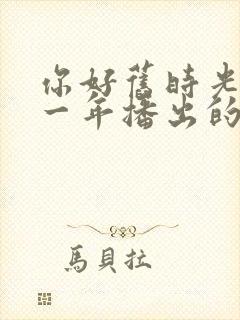 你好舊時光
一年播出的
馬貝拉